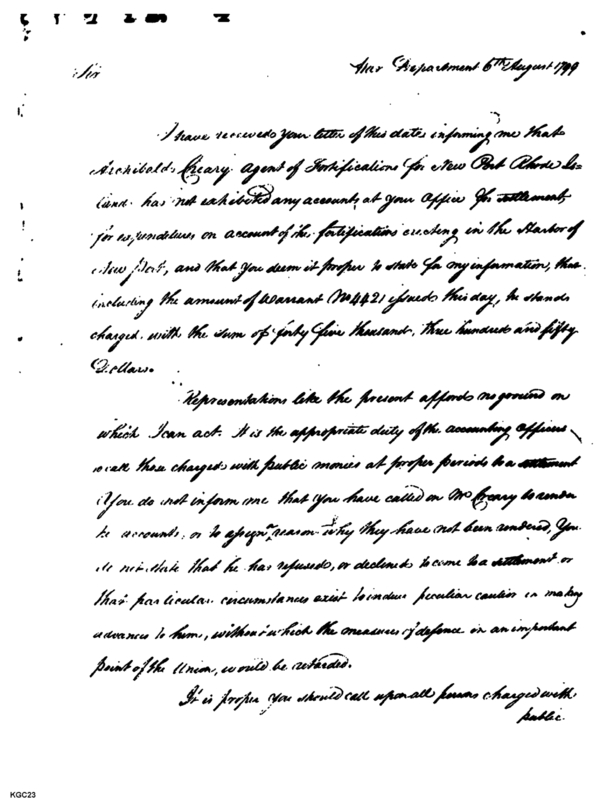 Sir War Department 6th August 1799
I have received your letter of this date informing me that
Archibald Creary Agent of Fortifications for New Port Rhode Is-
land has not exhibited any accounts at your Office for settlement
for expenditures on account of the fortifications erecting in the Harbor of
New Port, and that you deem it proper to state for my information, that
including the amount of Warrant No 4421 issued this day, he stands
charged with the sum of forty five thousand, three hundred and fifty
Dollars.
Representations like the present affords no ground on
which I can act. It is the appropriate duty of the accounting officers
to call those charged with public monies at proper periods to a settlement
You do not inform me that you have called on Mr Creary to render
his accounts, or to assign reason why they have not been rendered, You
do not state that he has refused, or declined to come to a settlement or
that particular circumstances exist to induce peculiar caution in making
advances to him, without which the measures of defence in an important
point of the Union, would be retarded.
It is proper you should call upon all persons charged with
public
KGC23